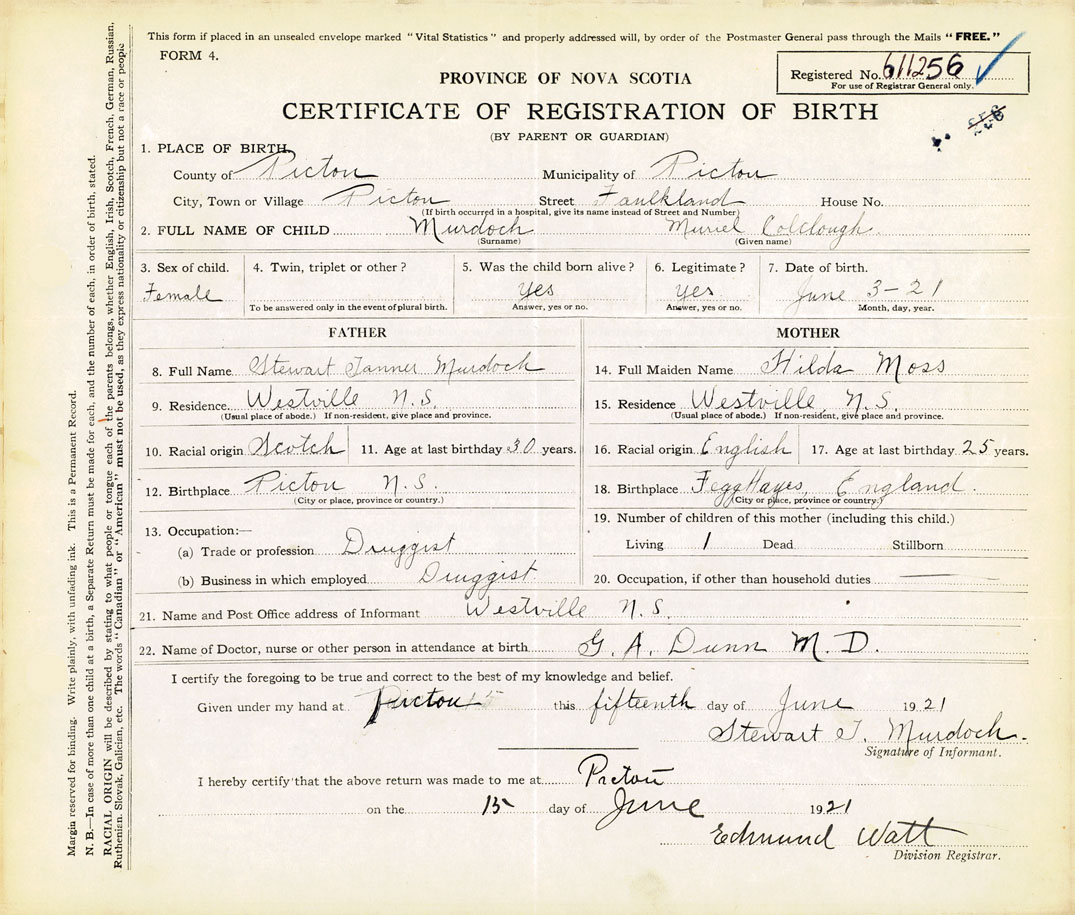 This form if placed in an unsealed envelope marked "Vital Statistics" and properly addressed will, by order of the Postmaster General pass through the Mails "FREE."
FORM 4.
Registered No. 611256
For use of Registrar General only.
PROVINCE OF NOVA SCOTIA
CERTIFICATE OF REGISTRATION OF BIRTH
(BY PARENT OR GUARDIAN)
1. PLACE OF BIRTH.
County of Pictou Municipality of Pictou
City, Town or Village Pictou Street Faulkland House No.
(If birth occurred in a hospital, give its name instead of Street and Number)
2. FULL NAME OF CHILD Murdoch Muriel Colclough
(Surname) (Given name)
3. Sex of child. 4. Twin, triplet or other? 5. Was the child born alive? 6. Legitimate? 7. Date of birth.
Female yes yes June 3-21
To be answered only in the event of plural birth. Answer, yes or no. Answer, yes or no. Month, day, year.
FATHER
8. Full Name Stewart Tanner Murdoch
9. Residence Westville N.S.
(Usual place of abode.) If non-resident, give place and province.
10. Racial origin Scotch 11. Age at last birthday 30 years.
12. Birthplace Pictou N.S.
(City or place, province or country.)
13. Occupation:—
(a) Trade or profession Druggist
(b) Business in which employed Druggist
MOTHER
14. Full Maiden Name Hilda Moss
15. Residence Westville N.S.
(Usual place of abode.) If non-resident, give place and province.
16. Racial origin English 17. Age at last birthday 25 years.
18. Birthplace Fegg Hayes, England.
(City or place, province or country.)
19. Number of children of this mother (including this child.)
Living 1 Dead Stillborn
20. Occupation, if other than household duties
21. Name and Post Office address of Informant Westville N.S.
22. Name of Doctor, nurse or other person in attendance at birth G. A. Dunn M.D.
I certify the foregoing to be true and correct to the best of my knowledge and belief.
Given under my hand at Pictou this fifteenth day of June 1921
Stewart T. Murdoch.
Signature of Informant.
I hereby certify that the above return was made to me at Pictou
on the 15 day of June 1921
Edmund Watt
Division Registrar.
Margin reserved for binding. Write plainly, with unfading ink. This is a Permanent Record.
N. B.—In case of more than one child at a birth, a Separate Return must be made for each, and the number of each, in order of birth, stated.
RACIAL ORIGIN will be described by stating to what people or tongue each of the parents belongs, whether English, Irish, Scotch, French, German, Russian,
Ruthenian, Slovak, Galician, etc. The words "Canadian" or "American" must not be used, as they express nationality or citizenship but not a race or people